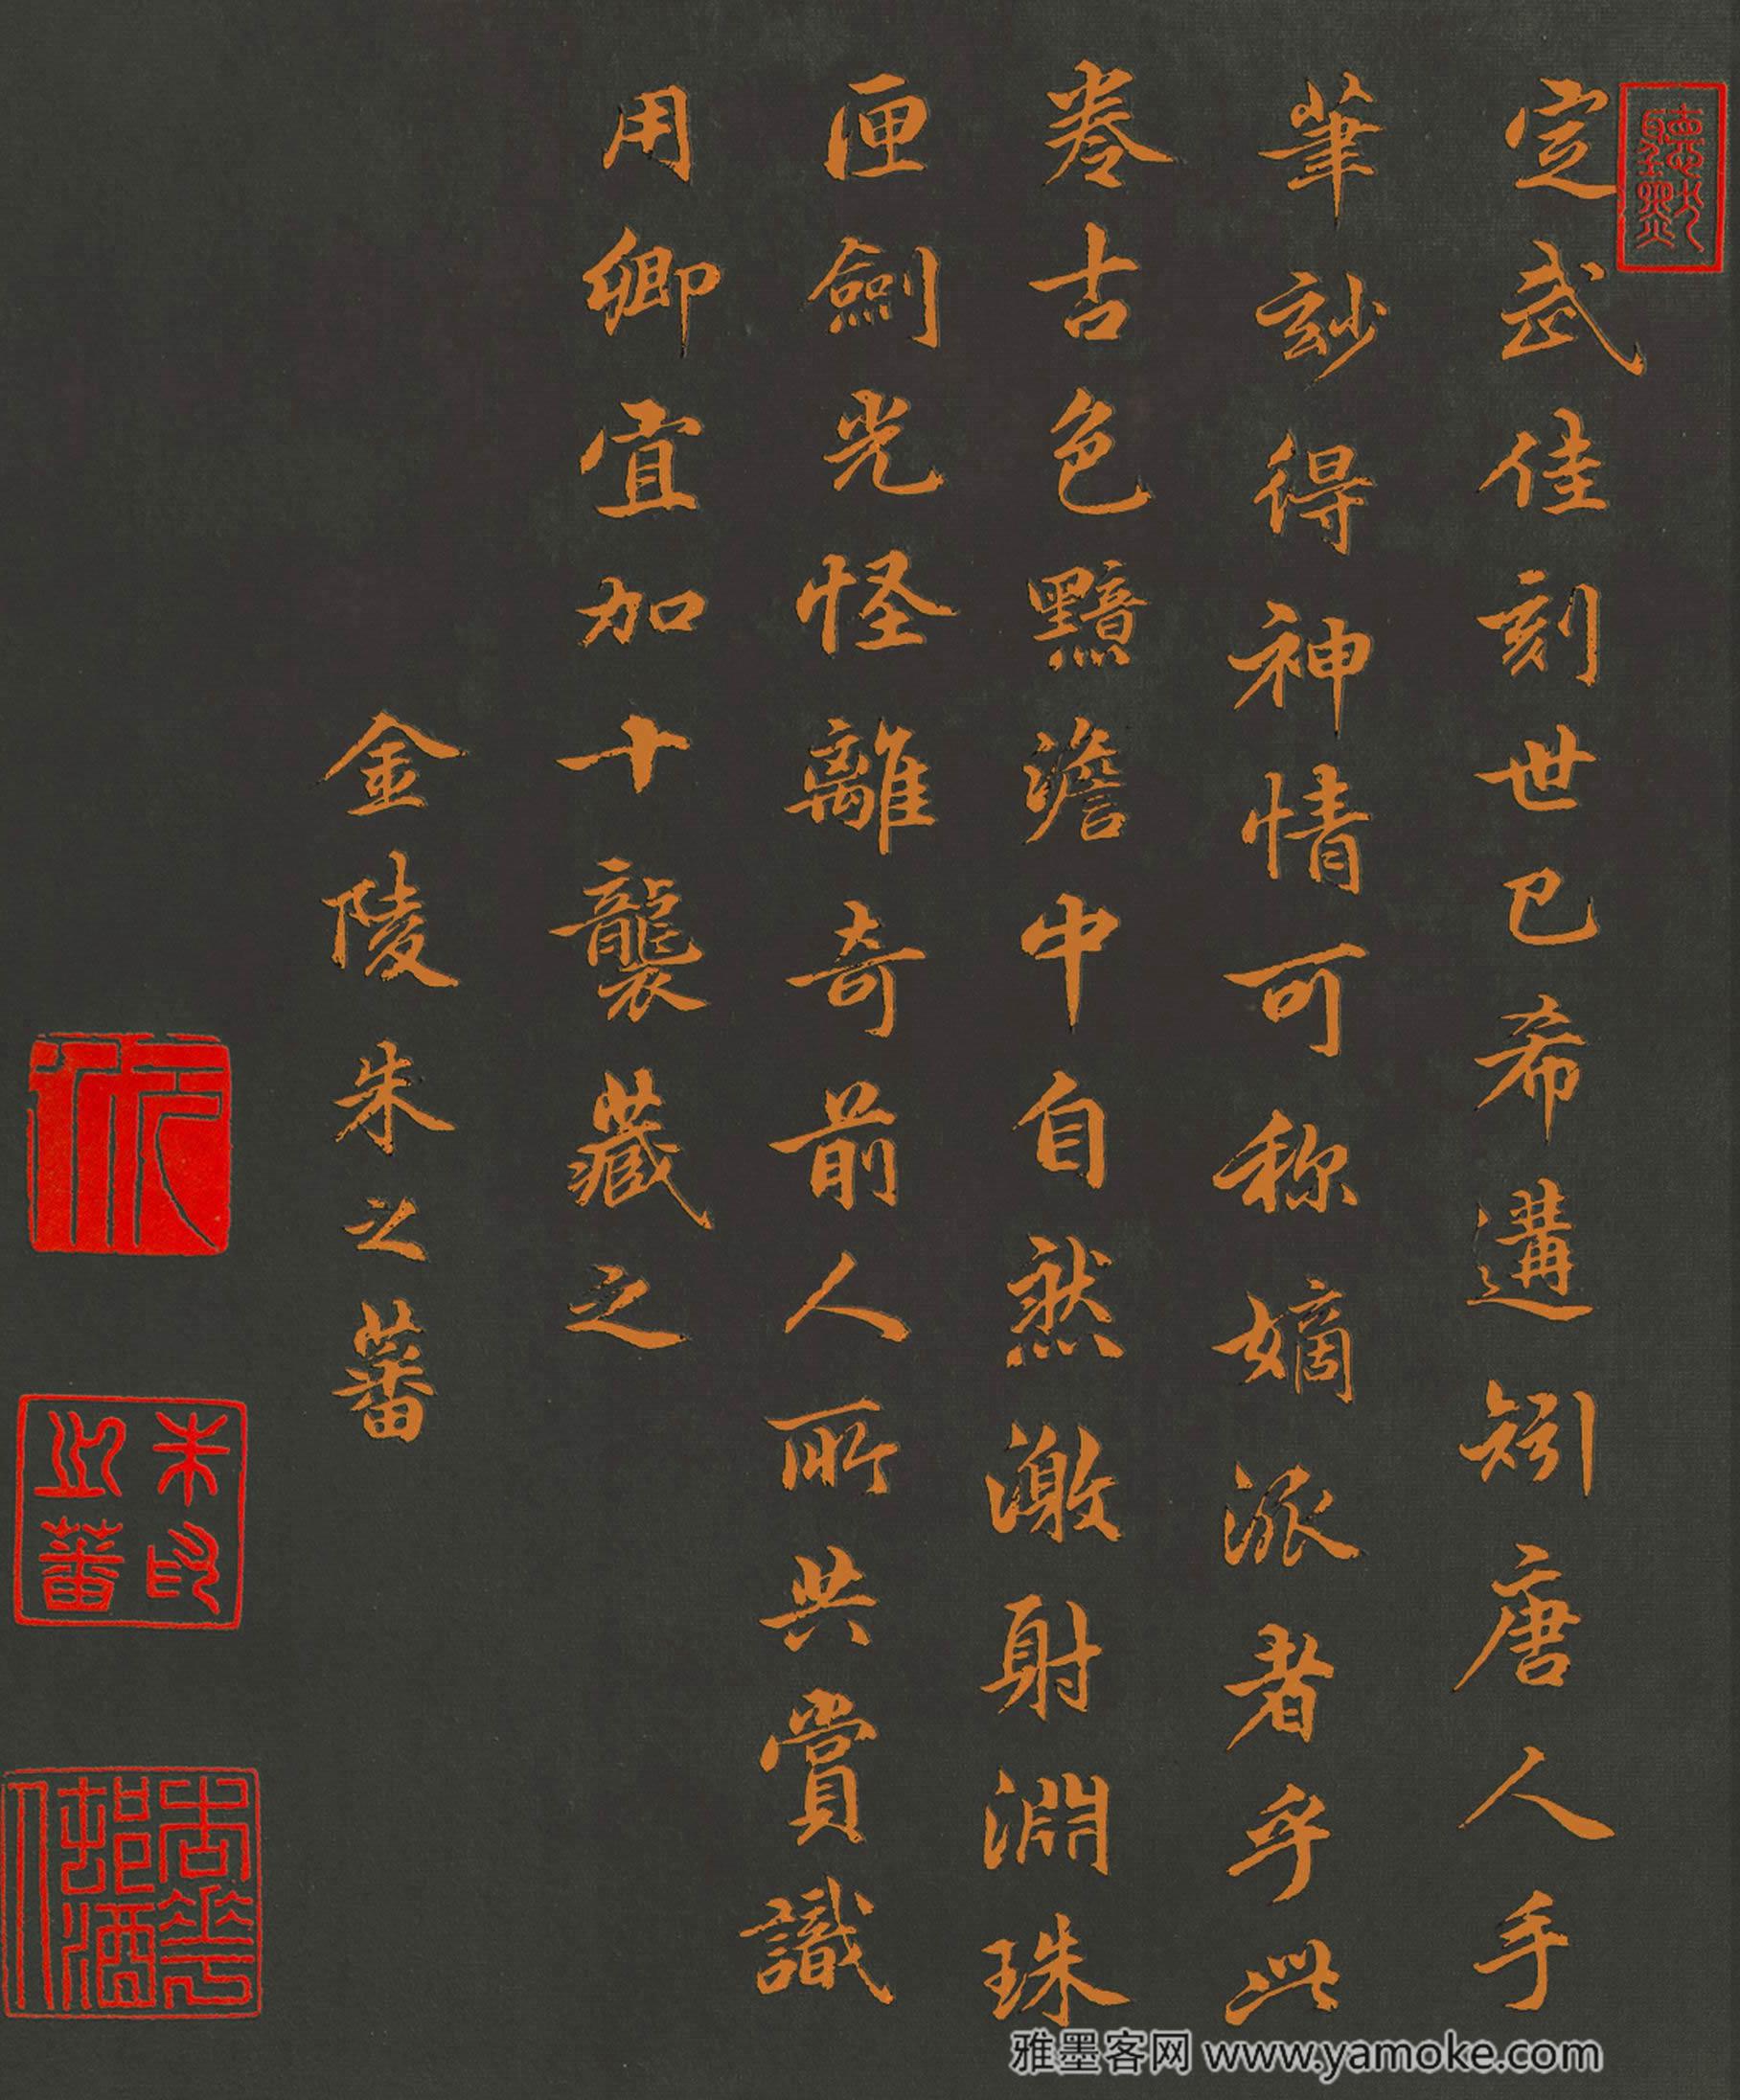 定武佳刻世已希遘矧唐人手
筆玅得神情可称嫡派者乎此
卷古色黯澹中自然激射淵珠
匣劍光怪離奇前人所共賞識
用卿宜加十襲藏之
金陵朱之蕃
朱之蕃印
雅墨客网 www.yamoke.com